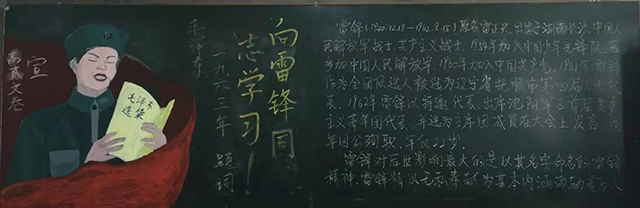 宣
高贰文叁
毛泽东
选集
向雷锋同
志学习！
一九六三年 题词
毛泽东
雷锋(1940.12.18—1962.8.15)原名雷正兴,出生于湖南长沙,中国人
民解放军战士,共产主义战士,1954年加入中国少年先锋队,
参加中国人民解放军,1960年加入中国共产党,1961年雷锋
作为全团候选人被选为辽宁省抚顺市第四届人
表,1962年雷锋以特邀代表出席沈阳军区
主义青年团代表,并选为主席团成员在大会上发言
年因公殉职,年仅22岁。
雷锋对后世影响最大的是以其名字命名的雷锋
精神,雷锋精以无私奉献为基本内涵激励着